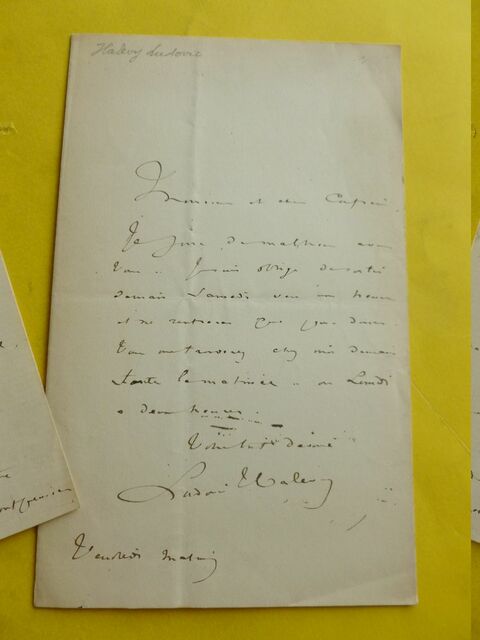 Halévy Ludovic
Monsieur et cher Confrère
Je joue de malheur avec
vous. Je suis obligé de sortir
demain Samedi vers une heure
et ne rentrerai que pour dîner.
Vous me trouverez chez moi demain
toute la matinée ou Lundi
à deux heures.
Votre bien dévoué
Ludovic Halévy
Vendredi matin